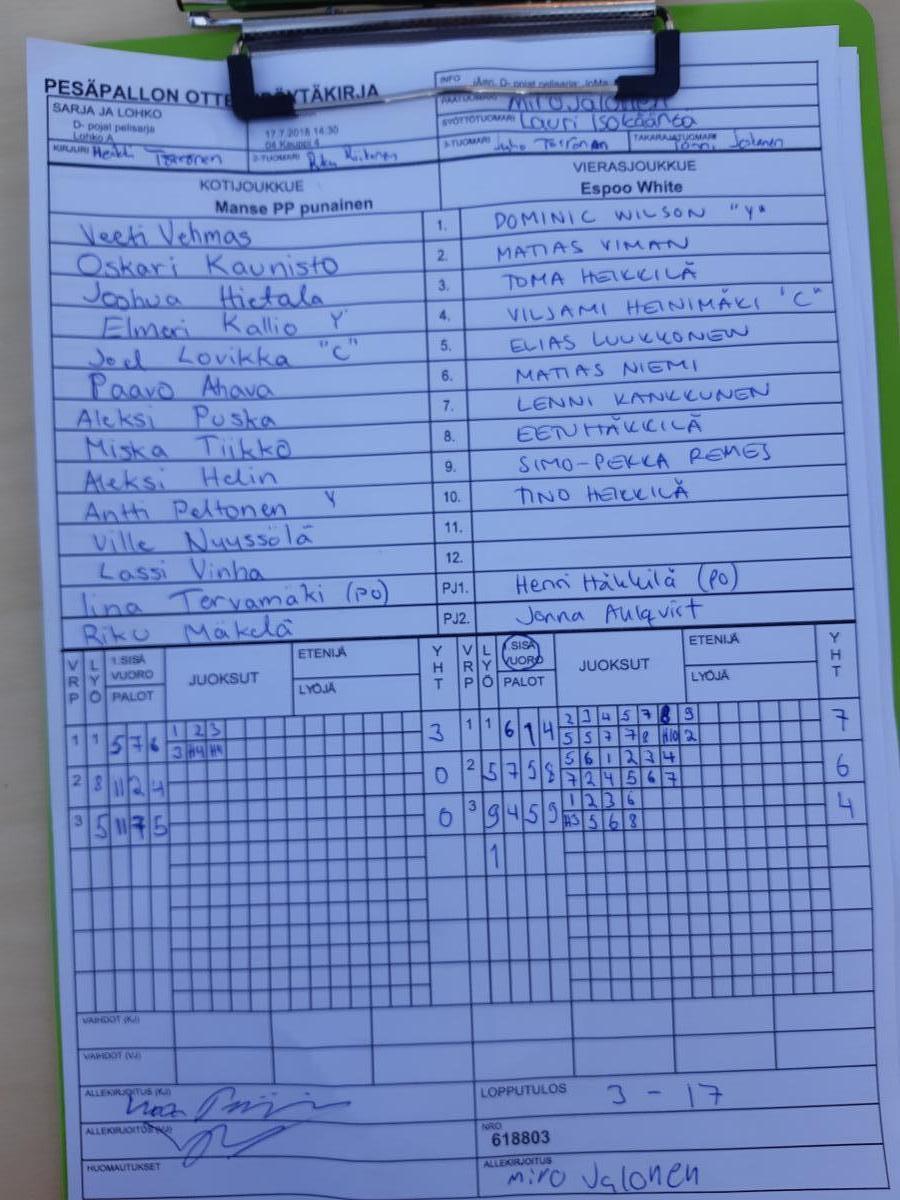 PESÄPALLON OTTE
SARJA JA LOHKO
D- pojat pelisarja
Lohko A
17.7.2018 14.30
04 Kauppi 4
INFO
Miro Jalonen
SYÖTTÖTUOMARI Lauri Isokääntä
KIRJURI Heikki Toivonen
2-TUOMARI Riku
3-TUOMARI Juho Toivonen
TAKARAJATUOMARI Jalonen
KOTIJOUKKUE
Manse PP punainen
VIERASJOUKKUE
Espoo White
Veeti Vehmas 1. DOMINIC WILSON "Y"
Oskari Kaunisto 2. MATIAS VIMAN
Joshua Hietala 3. TOMA HEIKKILÄ
Elmeri Kallio Y 4. VILJAMI HEINIMÄKI "C"
Joel Lovikka "C" 5. ELIAS LUUKKONEN
Paavo Ahava 6. MATIAS NIEMI
Aleksi Puska 7. LENNI KANKKUNEN
Miska Tiikko 8. EETU HÄKKILÄ
Aleksi Helin 9. SIMO-PEKKA REMES
Antti Peltonen Y 10. TINO HEIKKILÄ
Ville Nuyssölä 11.
Lassi Vinha 12.
Iina Tervamäki (PO) PJ1. Henri Häkkilä (PO)
Riku Mäkelä PJ2. Jonna Ahlqvist
VRP LYÖ 1.SISÄ VUORO PALOT JUOKSUT ETENIJÄ LYÖJÄ YHT VRP LYÖ 1.SISÄ VUORO PALOT JUOKSUT ETENIJÄ LYÖJÄ YHT
1 1 5 7 6 1 2 3 3 1 1 6 1 4 2 3 4 5 7 8 9 7
3 H4 H4 5 5 7 7 8 H10 2
2 8 11 2 4 0 2 5 7 5 8 5 6 1 2 3 4 6
7 2 4 5 6 7
3 5 11 7 5 0 3 9 4 5 9 1 2 3 6 4
H3 5 6 8
1
VAIHDOT (KJ)
VAIHDOT (VJ)
ALLEKIRJOITUS (KJ)
LOPPUTULOS 3 - 17
ALLEKIRJOITUS (VJ)
NRO
618803
HUOMAUTUKSET
ALLEKIRJOITUS
Miro Jalonen